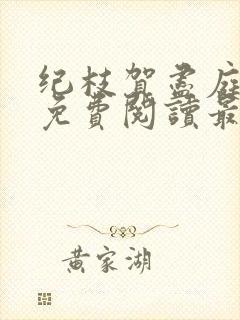 纪枝贺孟庭
免費閱讀最
黄家湖